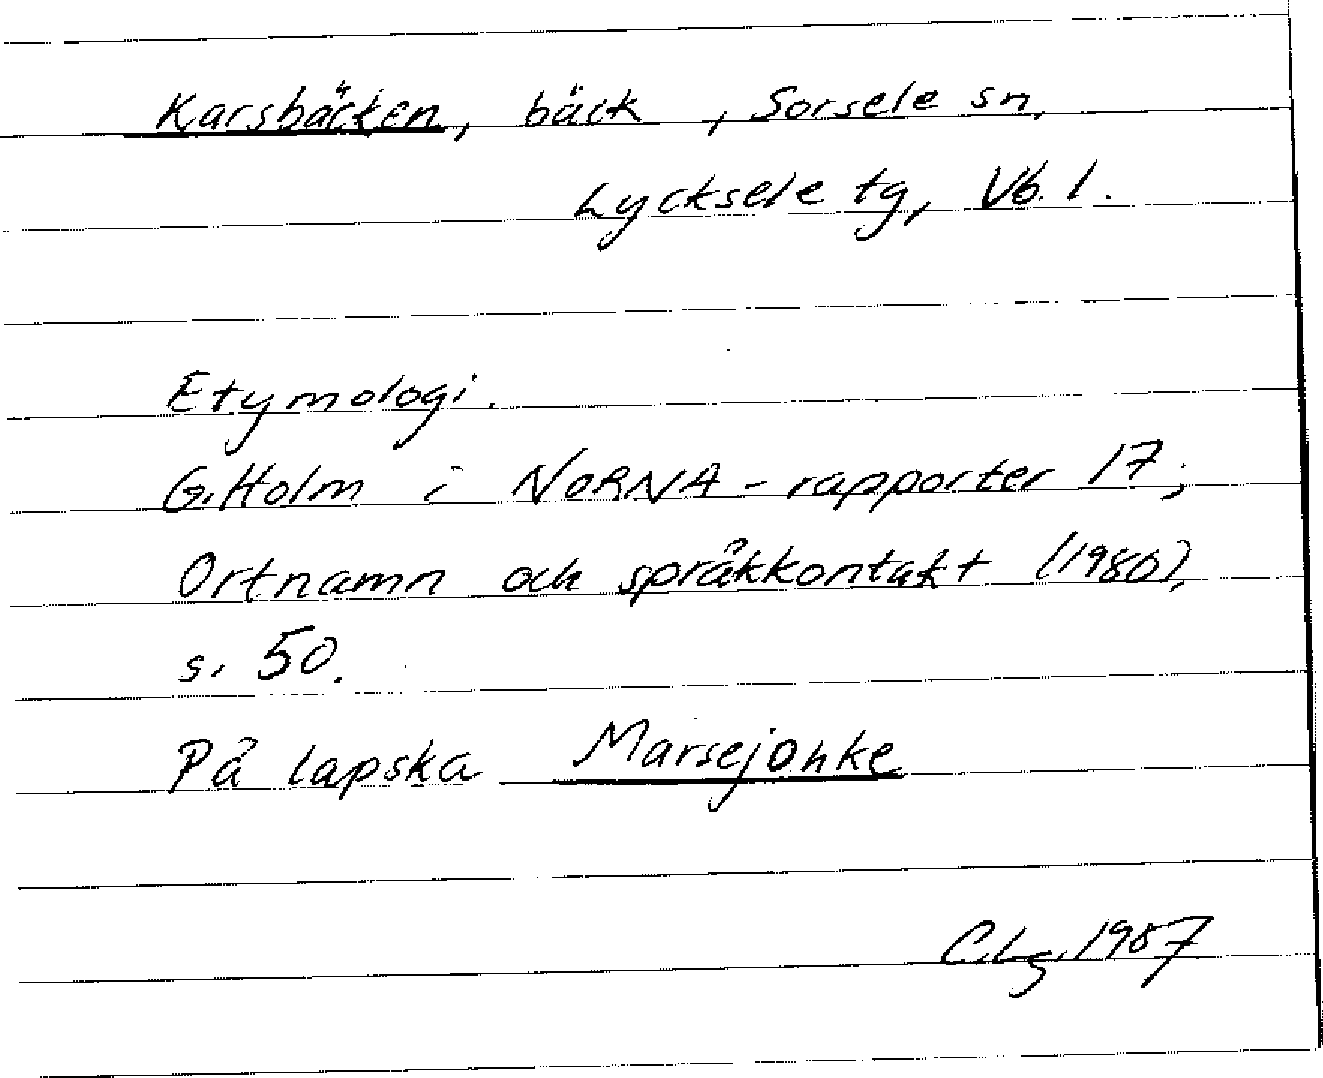 Karsbäcken, bäck , Sorsele sn,
Lycksele tg, Vb. l.
Etymologi.
G. Holm i NORNA-rapporter 17;
Ortnamn och språkkontakt (1980),
s. 50.
På lapska Marsejohke
C.Lg. 1987